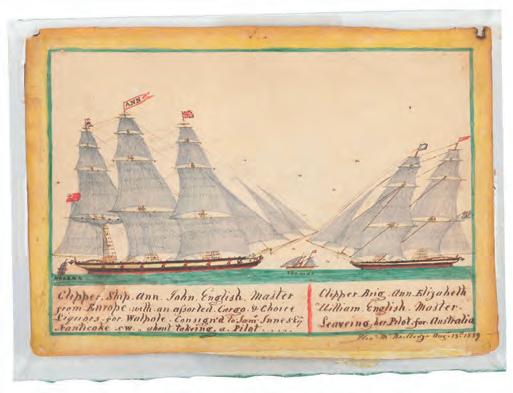 ANN
Clipper. Ship. Ann. John. English. Master
from Europe with an asorted Cargo. & Choice
Liquors, for Walpole. Consign'd to Saml Innes Esq
Nanticoke. C.W. about takeing. a. Pilot
Clipper Brig. Ann. Elizabeth
William. English. Master.
Leaveing, her Pilot. for Australia
Aug. 13th 1859